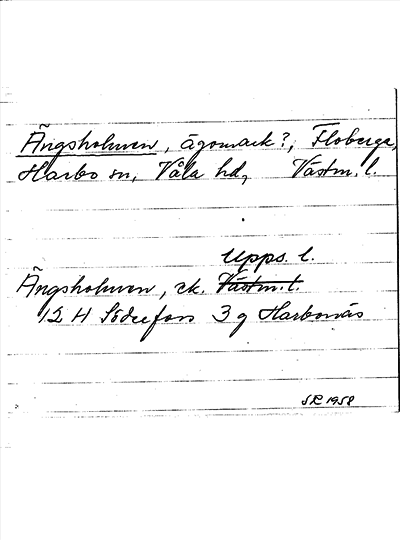 Ängsholmen, ägomark?, Floberga,
Harbo sn, Våla hd, Västm. l.
Upps. l.
Ängsholmen, ek. Västm. l.
12 H Söderfors 3 g Harbonäs
SR 1958